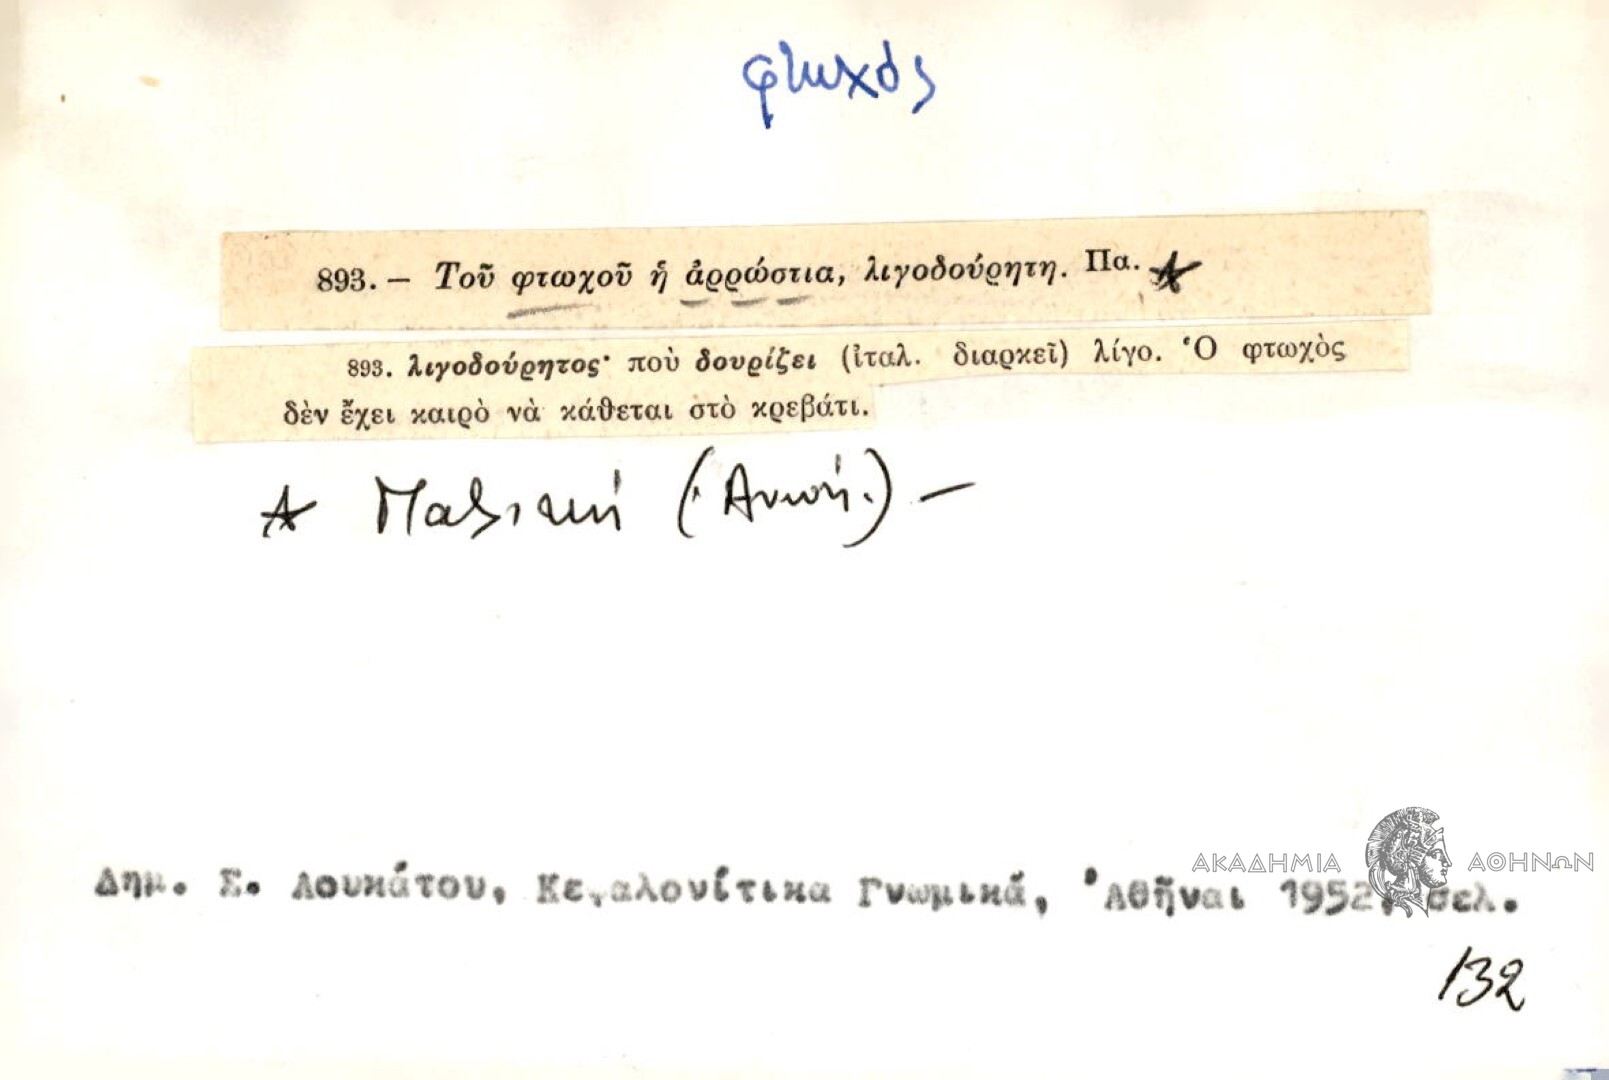 φτωχός
893. — Τοῦ φτωχοῦ ἡ ἀρρώστια, λιγοδούρητη. Πα.
893. λιγοδούρητος· ποὺ δουρίζει (ἰταλ. διαρκεῖ) λίγο. Ὁ φτωχὸς
δὲν ἔχει καιρὸ νὰ κάθεται στὸ κρεβάτι.
(Ἀνωή.) —
ΑΚΑΔΗΜΙΑ ΑΘΗΝΩΝ
Δημ. Σ. Λουκάτου, Κεφαλονίτικα Γνωμικά, Ἀθῆναι 1952, σελ.
132